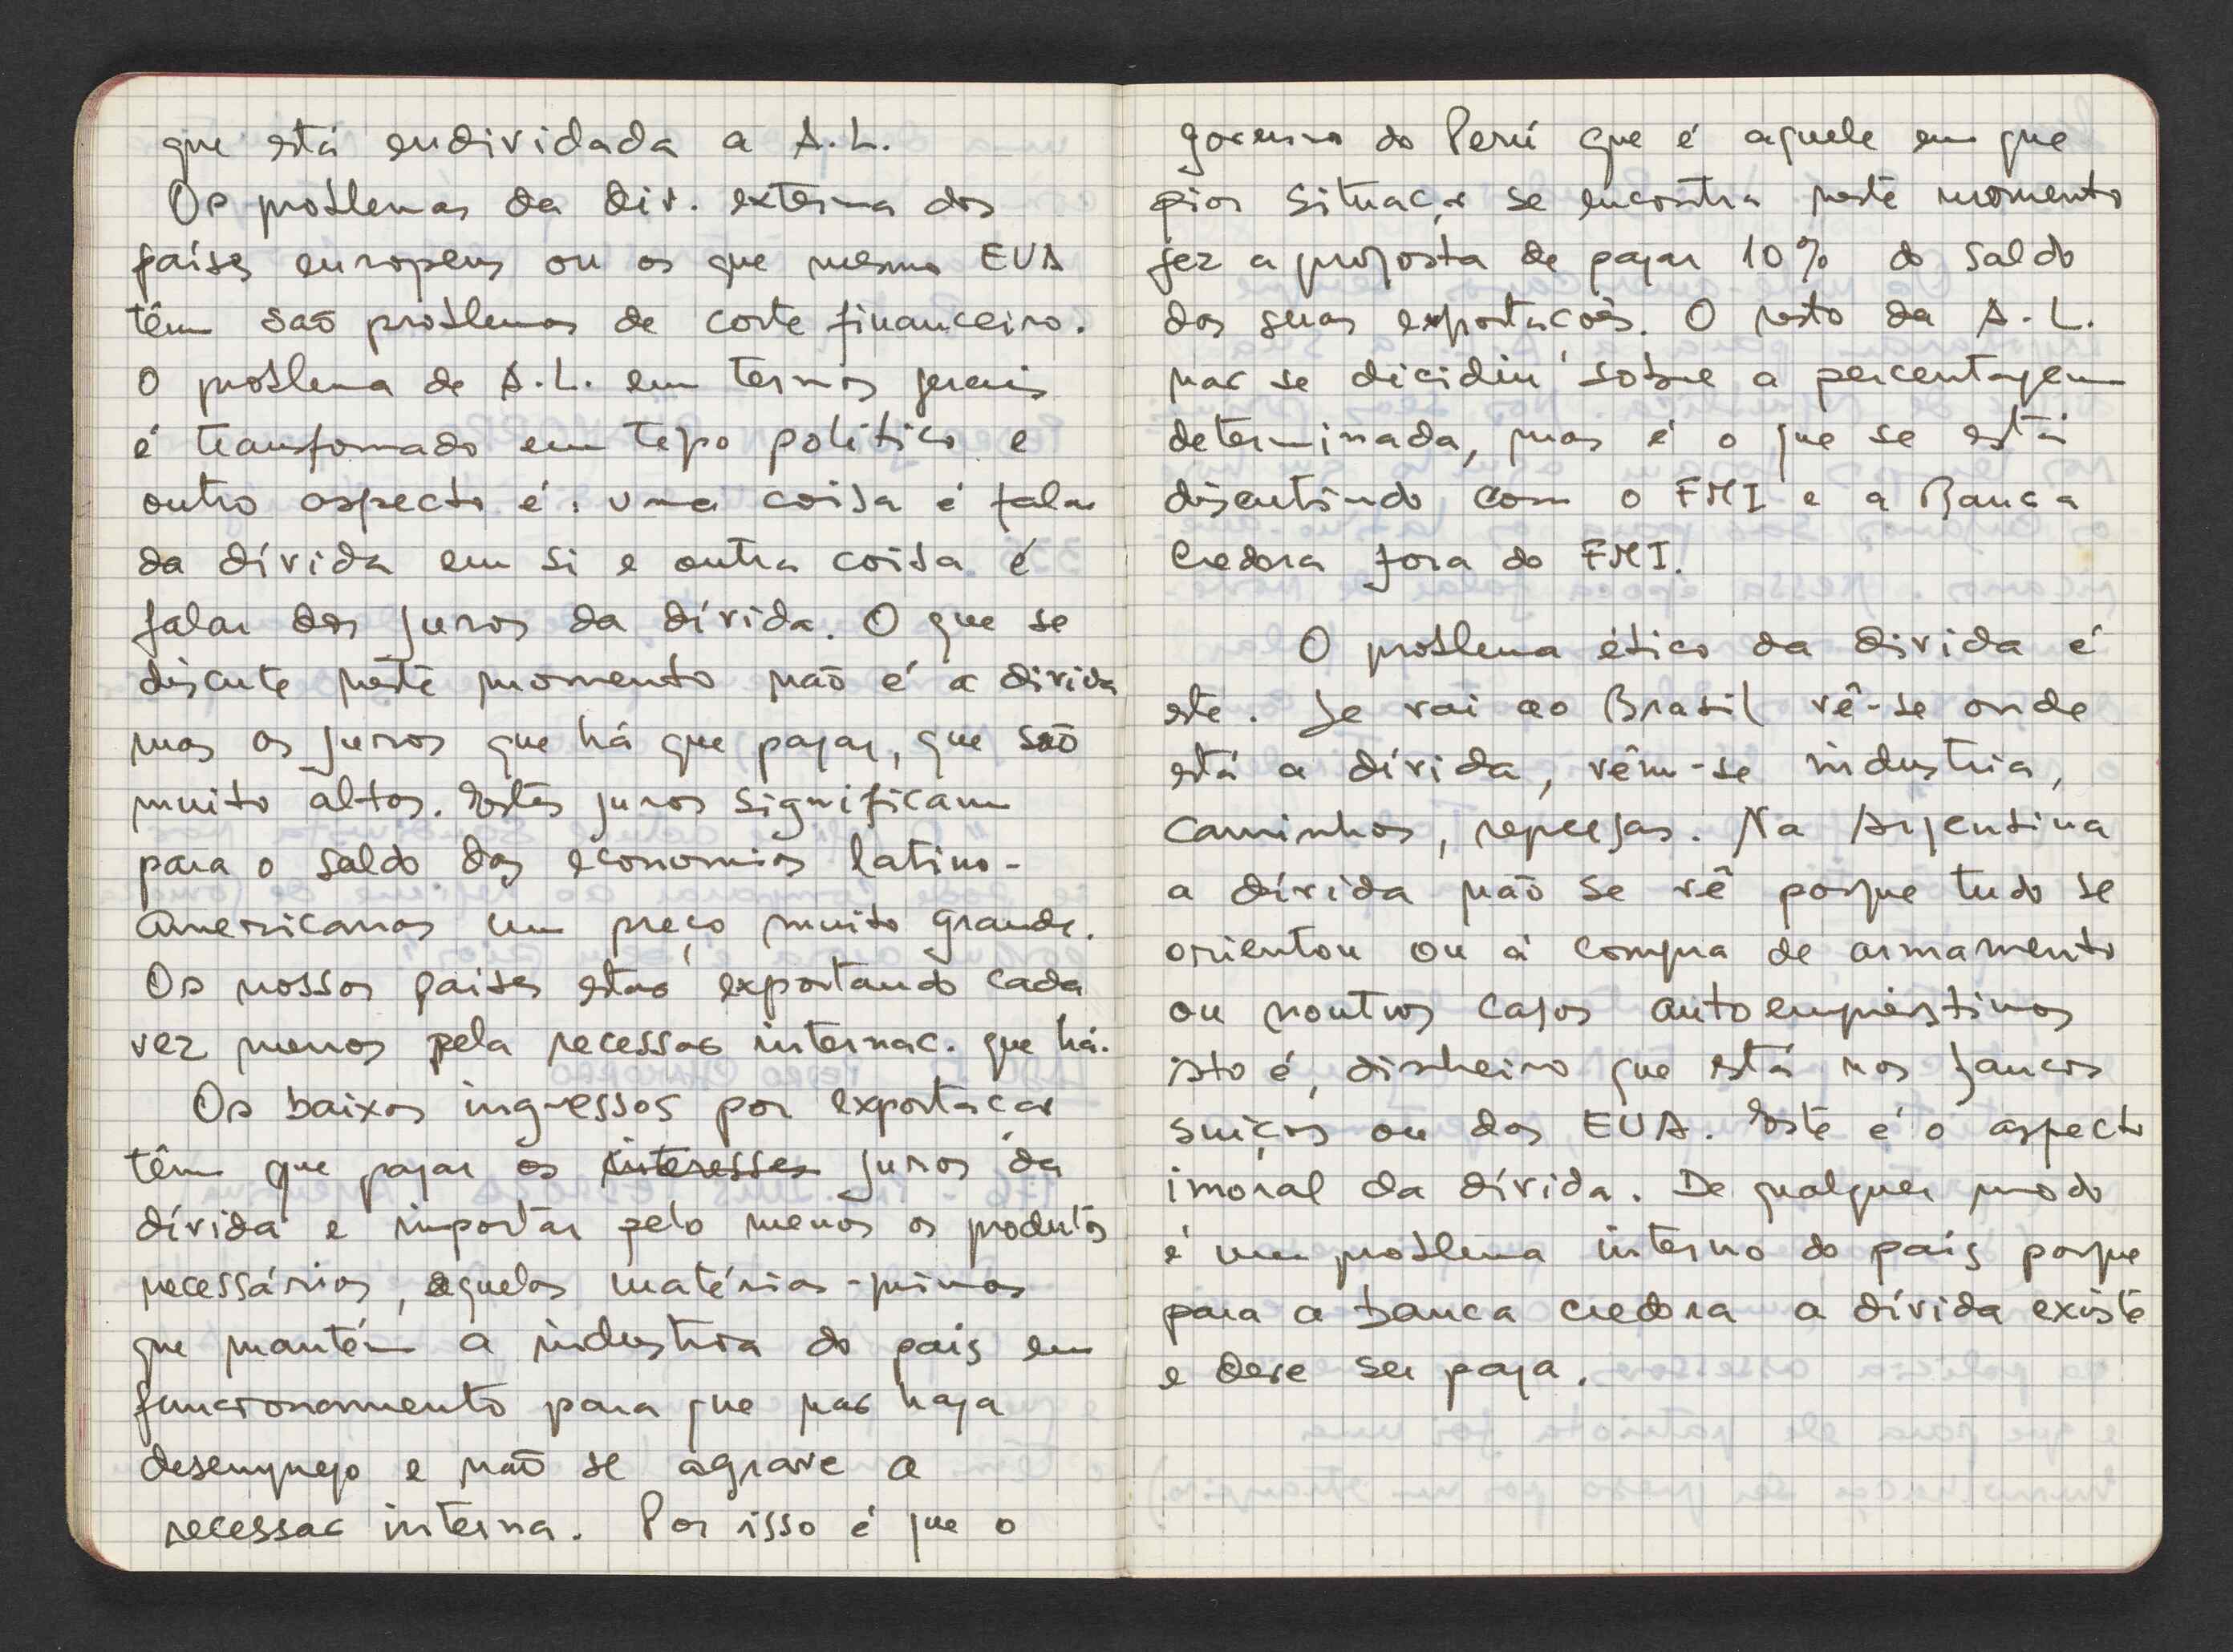 que está endividada a A.L.
Os problemas da div. externa dos
países europeus ou os que mesmo EUA
têm são problemas de corte financeiro.
O problema de A.L. em termos gerais
é transformado em tipo político e
outro aspecto é: uma coisa é falar
da dívida em si e outra coisa é
falar dos juros da dívida. O que se
discute neste momento não é a divida
mas os juros que há que pagar, que são
muito altos. Estes juros significam
para o saldo das economias latino-
americanas um preço muito grande.
Os nossos paises estão exportando cada
vez menos pela recessão internac. que há.
Os baixos ingressos por exportação
têm que pagar os interesses juros da
dívida e importar pelo menos os produtos
necessários, aquelas matérias-primas
que mantém a industria do país em
funcionamento para que não haja
desemprego e não se agrave a
recessão interna. Por isso é que o
governo do Perú que é aquele em que
pior situação se encontra neste momento
fez a proposta de pagar 10% do saldo
das suas exportações. O resto da A.L.
não se dicidiu sobre a percentagem
determinada, mas é o que se está
discutindo com o FMI e a Banca
Credora fora do FMI.
O problema ético da divida é
este. Se vai ao Brasil vê-se onde
está a dívida, vêm-se industria,
caminhos, represas. Na Argentina
a dívida não se vê porque tudo se
orientou ou à compra de armamento
ou noutros casos autoemprestimos
isto é, dinheiro que está nos bancos
suiços ou dos EUA. Este é o aspecto
imoral da dívida. De qualquer modo
é um problema interno do país porque
para a banca credora a dívida existe
e deve ser paga.